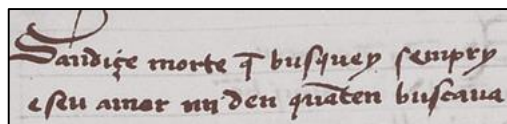 Sandiçe morte q̄ busquey sempry
e seu amor mi den quãten buscaua